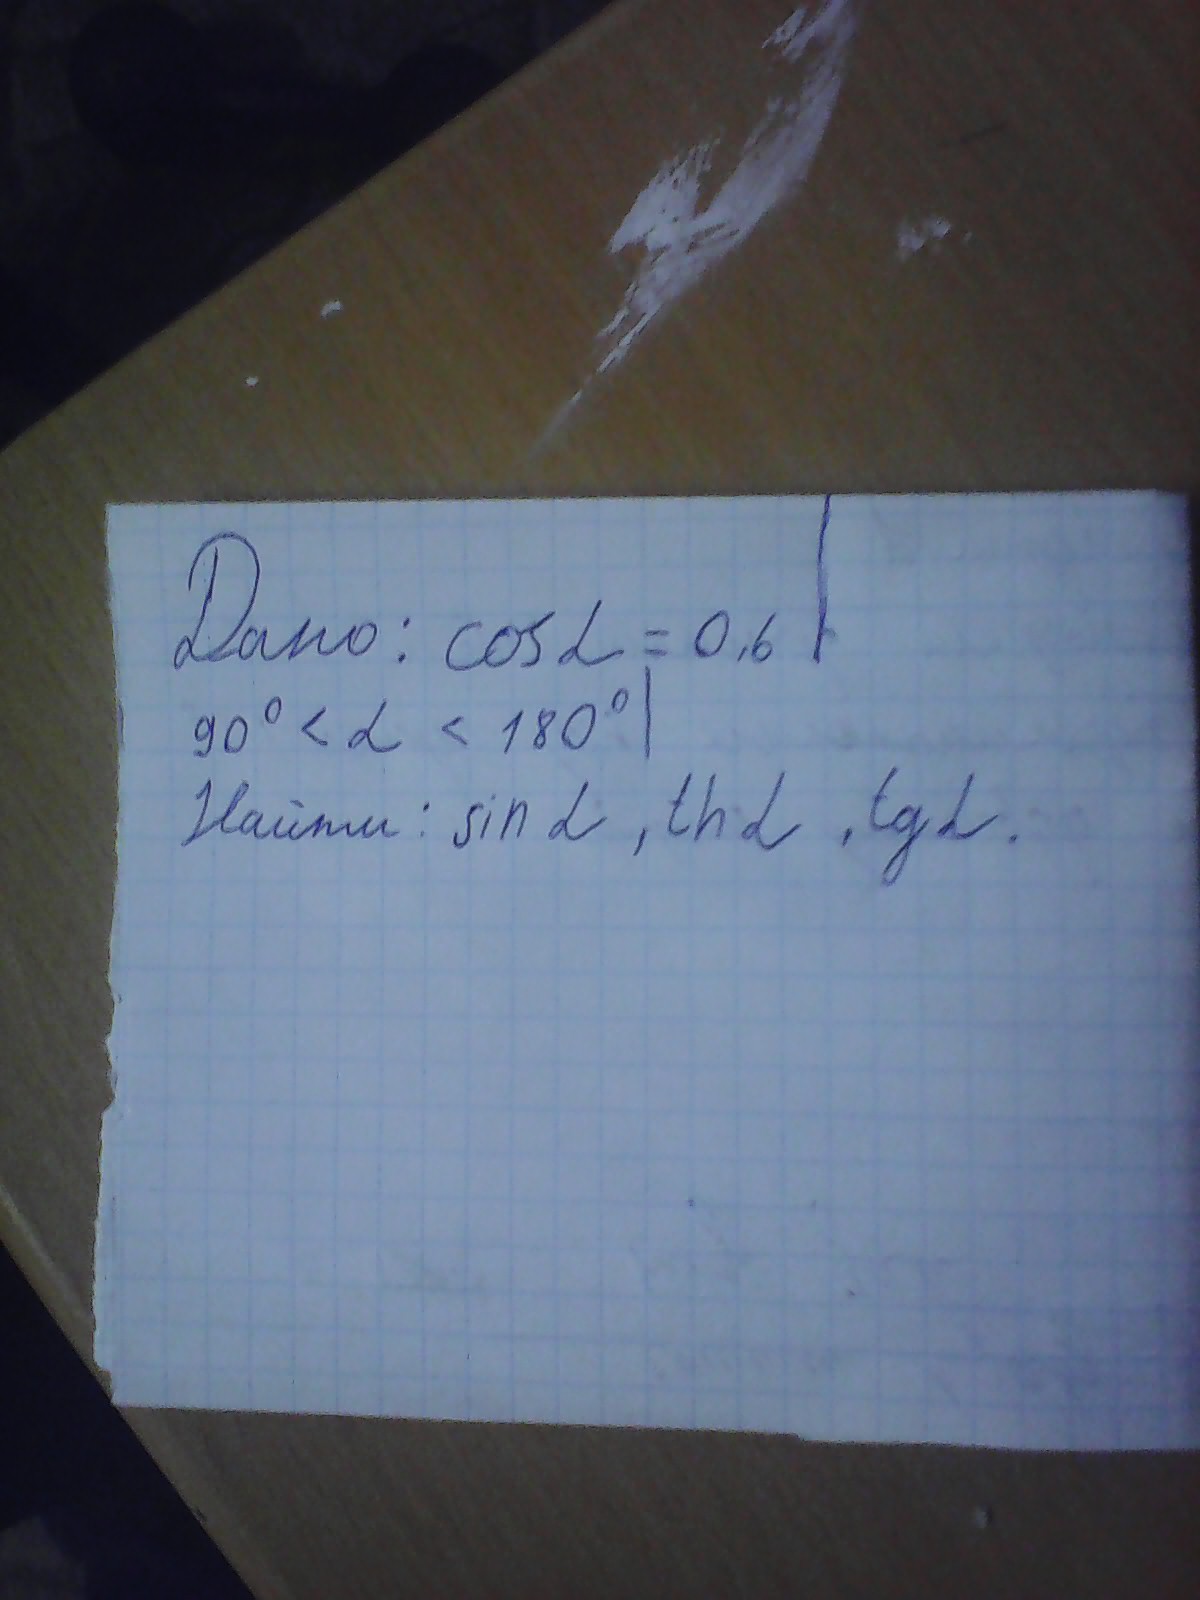 Дано: cos α = 0,6
90° < α < 180°
Найти: sin α, th α, tg α.